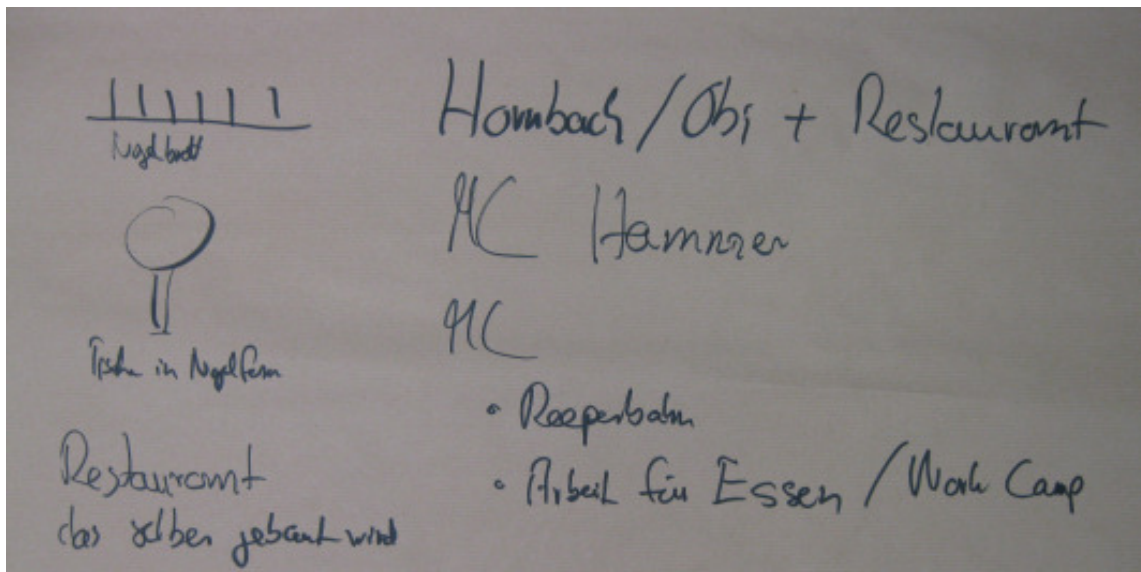 Nagelbrett
Tische in Nagelform
Restaurant
das selber gebaut wird
Hornbach / Obi + Restaurant
MC Hammer
MC
• Reeperbahn
• Arbeit für Essen / Work Camp